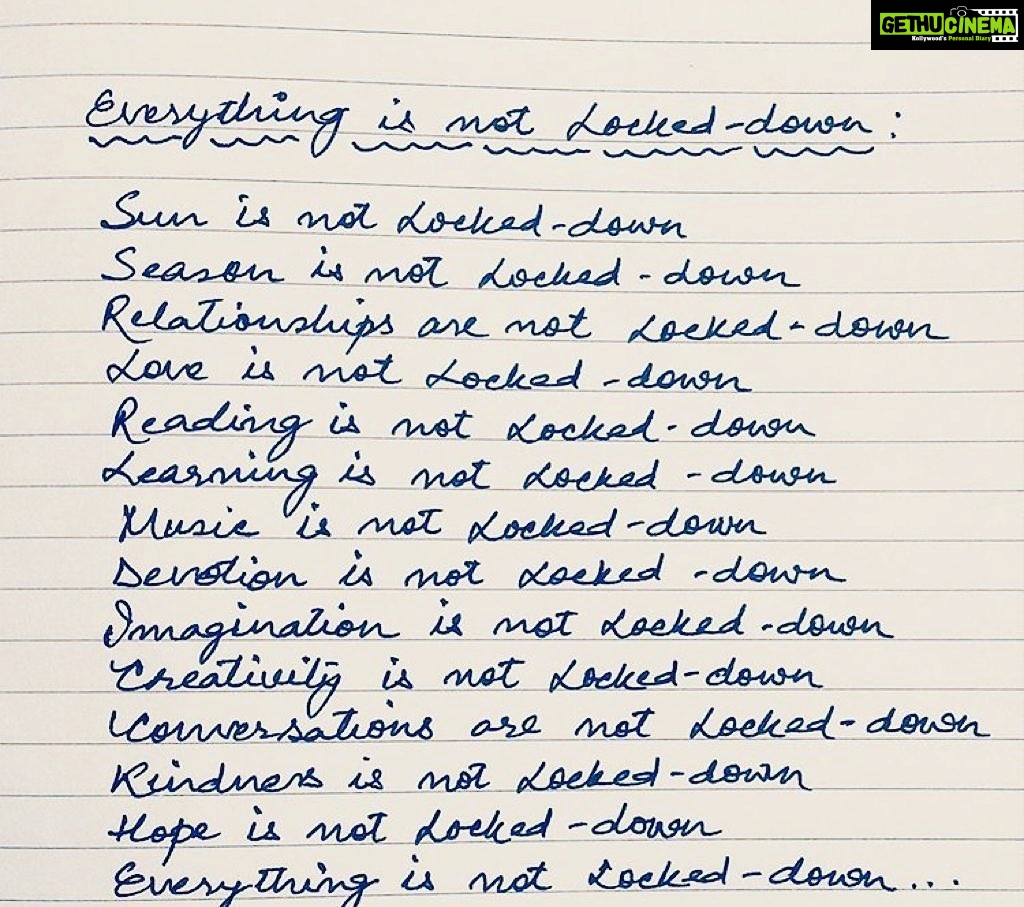 GETHUCINEMA
Kollywood's Personal Diary
Everything is not Locked-down:
Sun is not Locked-down
Season is not Locked-down
Relationships are not Locked-down
Love is not Locked-down
Reading is not Locked-down
Learning is not Locked-down
Music is not Locked-down
Devotion is not Locked-down
Imagination is not Locked-down
Creativity is not Locked-down
Conversations are not Locked-down
Kindness is not Locked-down
Hope is not Locked-down
Everything is not Locked-down...